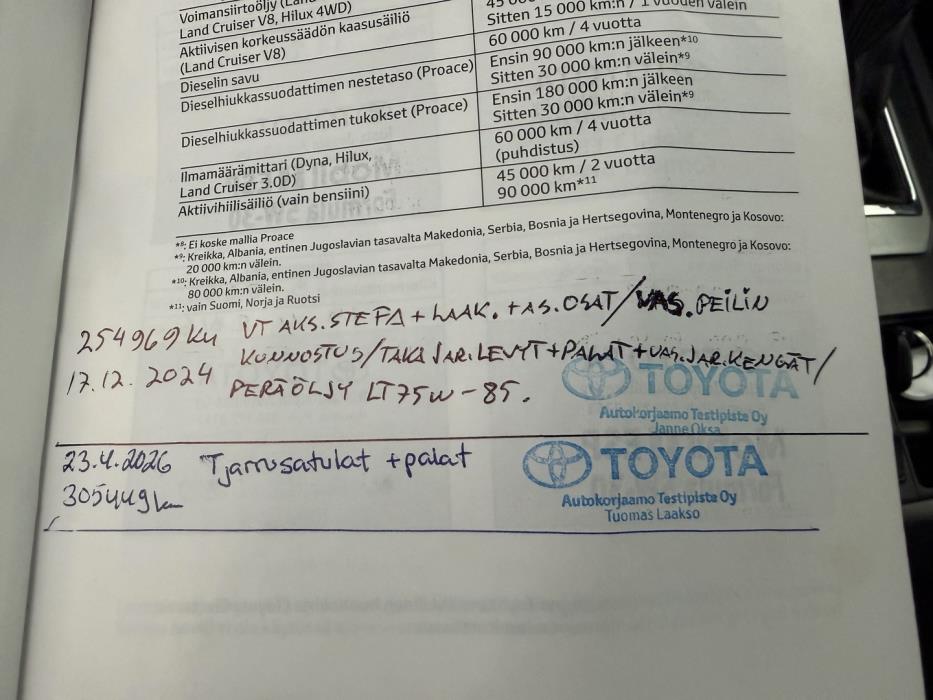 Voimansiirtoöljy
Land Cruiser V8, Hilux 4WD)
Sitten 15 000 km:n / 1 vuoden välein
Aktiivisen korkeussäädön kaasusäiliö
(Land Cruiser V8)
60 000 km / 4 vuotta
Dieselin savu
Ensin 90 000 km:n jälkeen*10
Sitten 30 000 km:n välein*9
Dieselhiukkassuodattimen nestetaso (Proace)
Ensin 180 000 km:n jälkeen
Sitten 30 000 km:n välein*9
Dieselhiukkassuodattimen tukokset (Proace)
60 000 km / 4 vuotta
(puhdistus)
Ilmamäärämittari (Dyna, Hilux,
Land Cruiser 3.0D)
45 000 km / 2 vuotta
Aktiivihiilisäiliö (vain bensiini)
90 000 km*11
*8: Ei koske mallia Proace
*9: Kreikka, Albania, entinen Jugoslavian tasavalta Makedonia, Serbia, Bosnia ja Hertsegovina, Montenegro ja Kosovo:
20 000 km:n välein.
*10: Kreikka, Albania, entinen Jugoslavian tasavalta Makedonia, Serbia, Bosnia ja Hertsegovina, Montenegro ja Kosovo:
80 000 km:n välein.
*11: vain Suomi, Norja ja Ruotsi
254969 km VT AKS.STEFA + LAAK. + AS.OSAT/VAS.PEILIN
17.12.2024 KUNNOSTUS/TAKA JAR.LEVYT+PALAT+VAS.JAR.KENGÄT/
PERÄÖLJY LT 75W-85.
TOYOTA
Autokorjaamo Testipiste Oy
Janne Oksa
23.4.2026 Tjarrusatulat + palat
305449 km
TOYOTA
Autokorjaamo Testipiste Oy
Tuomas Laakso